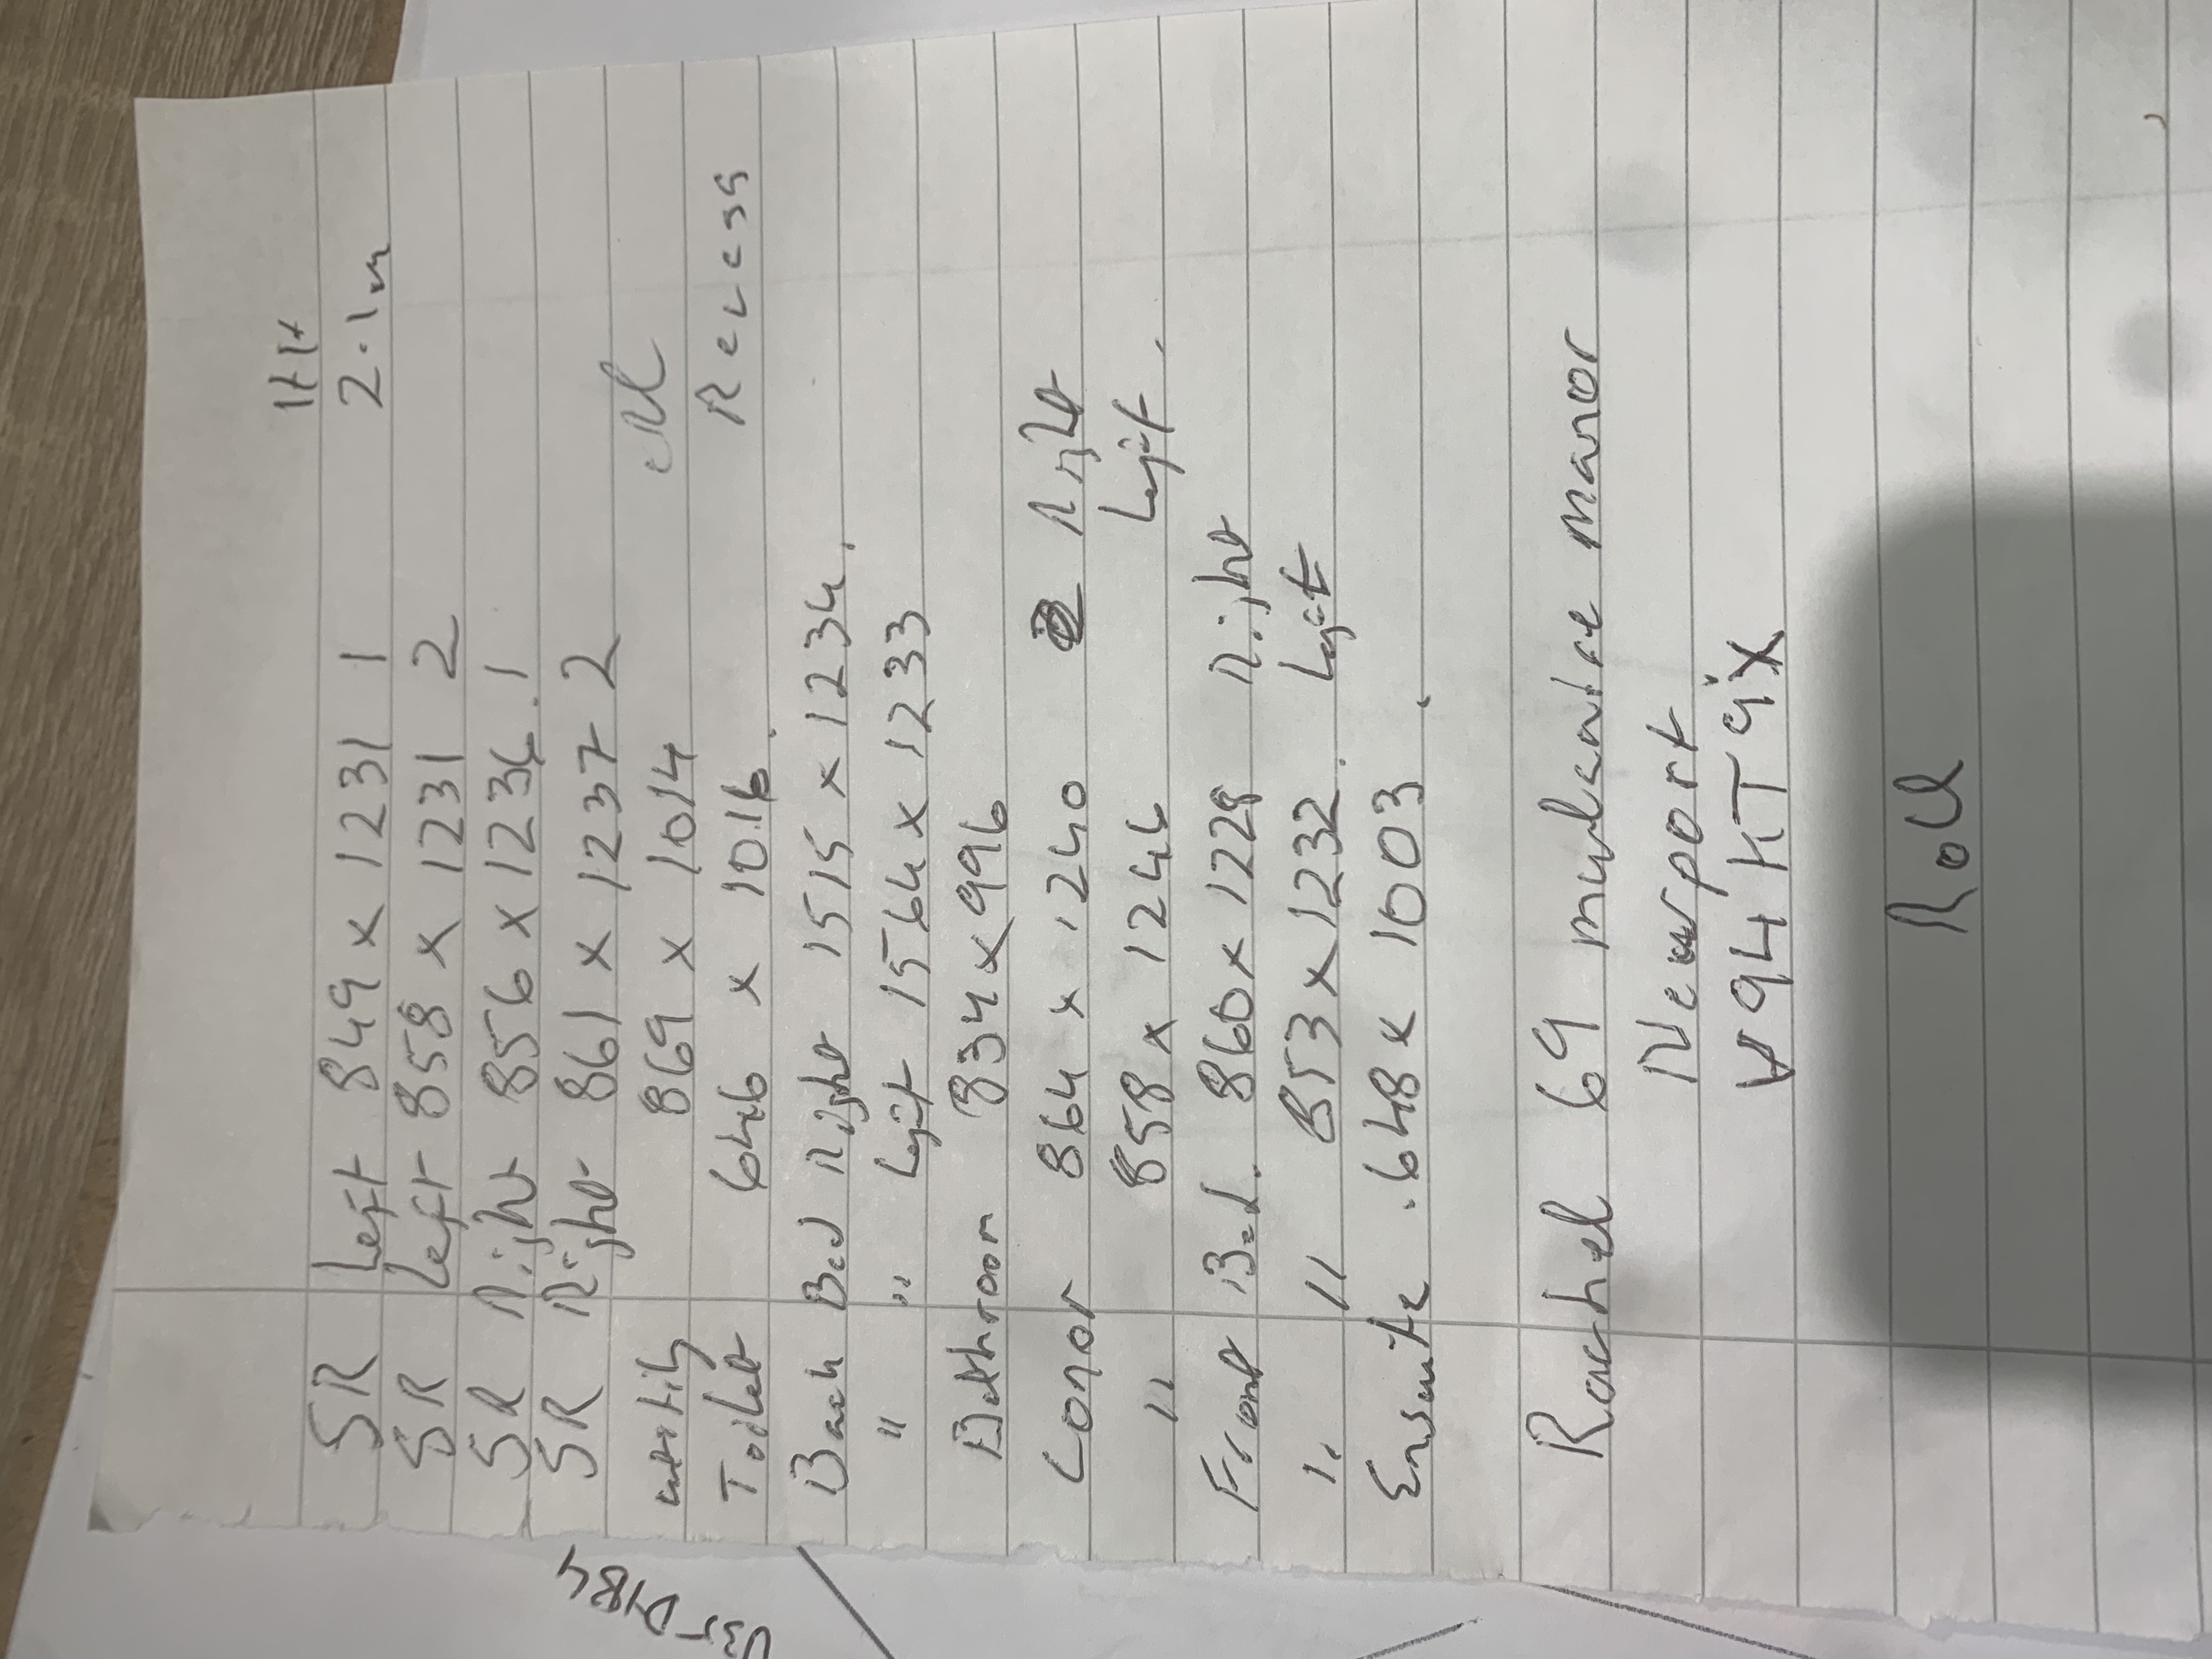 Ht
SR Left 849 x 1231 1 2.1m
SR Left 858 x 1231 2
SR Right 856 x 1234.1
SR Right 861 x 1237 2
utility 869 x 1014 all
Toilet 646 x 1016. Recess
Back Bed Right 1515 x 1234.
" " Left 1564 x 1233
Bathroom 834 x 996
Conor 864 x 1240 Right
" 858 x 1244 Left.
Front Bed. 860 x 1228 Right
" " 853 x 1232. Left
Ensuite .648 x 1003.
Rachel 69 mulcaire manor
Newport
V94 HT9X
Roll